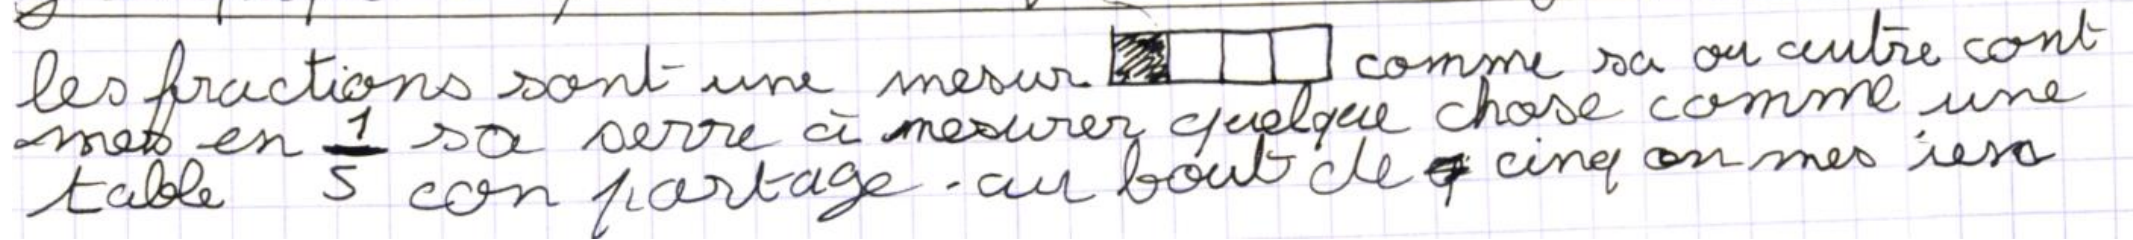 les fractions sont une mesur comme sa ou autre cont
mes en 1/5 sa serre à mesurer quelque chose comme une
table con partage. au bout de cinq on mes